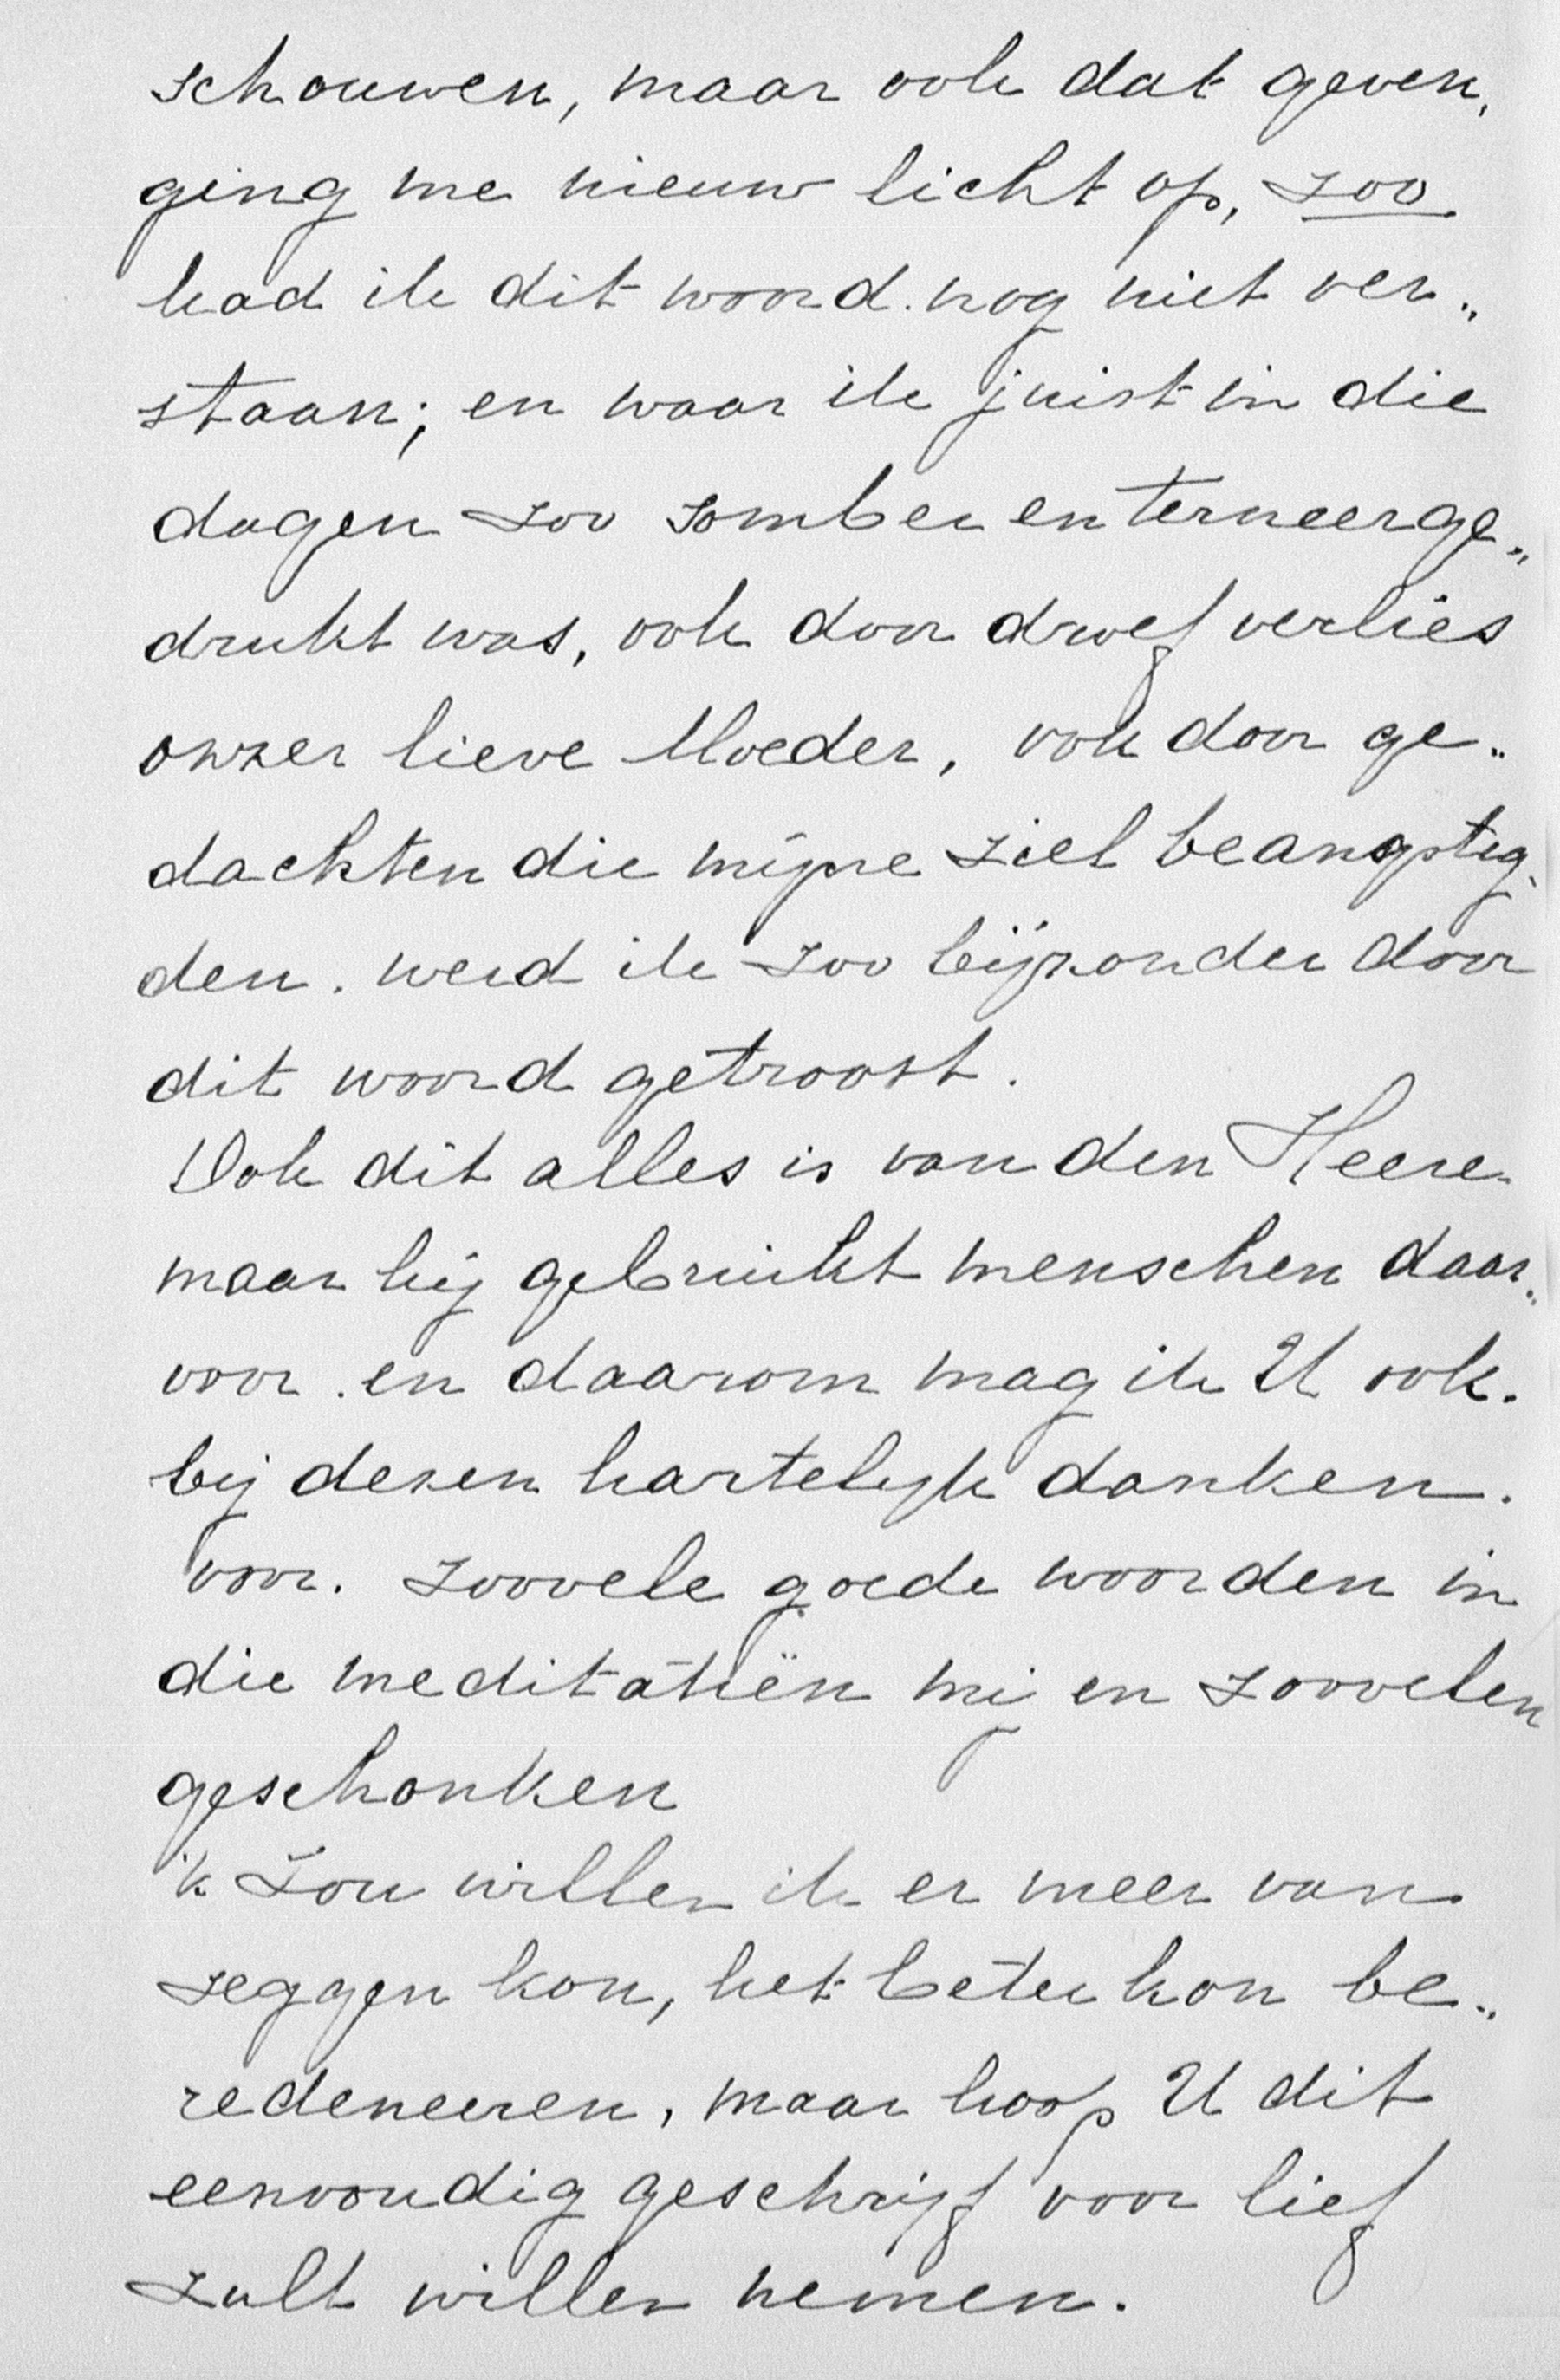 schouwen, maar ook dat geven,
ging me nieuw licht op, zoo
had ik dit woord. nog niet ver„
staan; en waar ik juist in die
dagen zoo somber en terneerge„
drukt was, ook door droef verlies
onzer lieve Moeder, ook door ge„
dachten die mijne ziel beangstig„
den. werd ik zoo bijzonder door
dit woord getroost.
Ook dit alles is van den Heere
maar hij gebruikt menschen daar„
voor. en daarom mag ik U ook.
bij dezen hartelijk danken.
voor. zoovele goede woorden in
die meditatiën mij en zoovelen
geschonken
'k Zou willen ik er meer van
zeggen kon, het beter kon be„
redeneeren, maar hoop U dit
eenvoudig geschrijf voor lief
zult willen nemen.